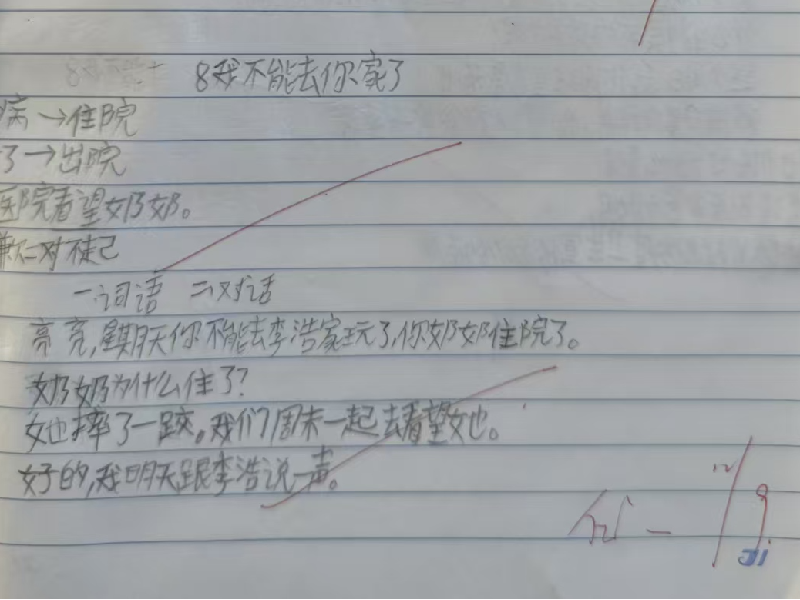 8我不能去你家了
病→住院
了→出院
医院看望奶奶。
歉=对不起
一词语 二对话
亮亮,星期天你不能去李浩家玩了,你奶奶住院了。
奶奶为什么住了?
她摔了一跤。我们周末一起去看望她。
好的,我明天跟李浩说一声。
12/9